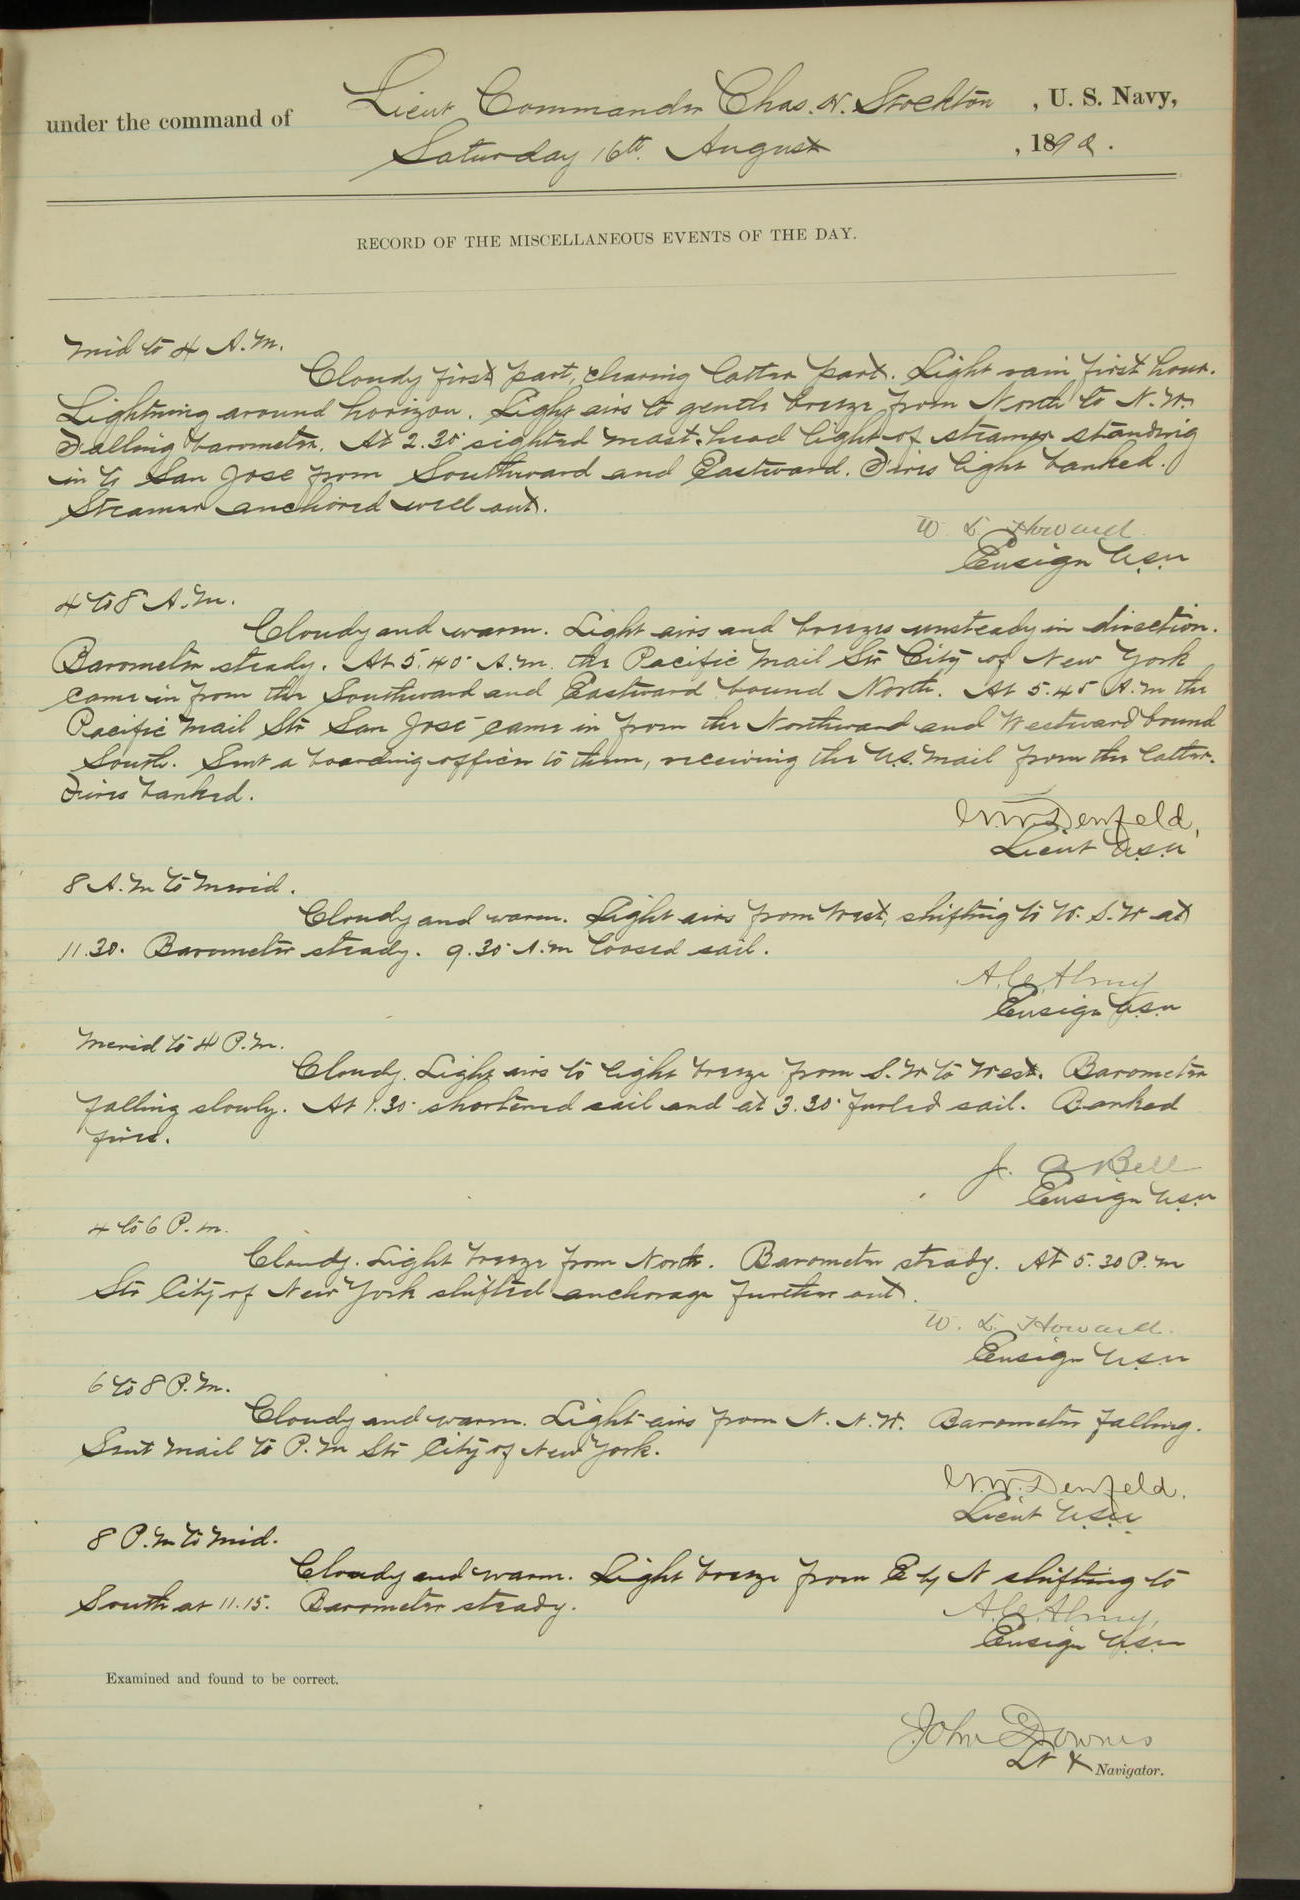 under the command of Lieut Commander Chas. H. Stockton, U. S. Navy,
Saturday 16th. August, 1890.
RECORD OF THE MISCELLANEOUS EVENTS OF THE DAY.
Mid to 4 A.M.
Cloudy first part, clearing latter part. Light rain first hour.
Lightning around horizon. Light airs to gentle breeze from North to N.W.
Falling barometer. At 2.30 sighted mast-head light of steamer standing
in to San Jose from Southward and Eastward. Fires light banked.
Steamer anchored well out.
W. L. Howard
Ensign U.S.N
4 to 8 A.M.
Cloudy and warm. Light airs and breezes unsteady in direction.
Barometer steady. At 5.40 A.M. the Pacific Mail Str City of New York
came in from the Southward and Eastward bound North. At 5.45 A.M the
Pacific Mail Str San Jose came in from the Northward and Westward bound
South. Sent a boarding officer to them, receiving the U.S. Mail from the latter.
Fires banked.
Denfeld,
Lieut U.S.N
8 A.M to Merid.
Cloudy and warm. Light airs from West, shifting to W. S. W at
11.30. Barometer steady. 9.30 A.M loosed sail.
A. C. Almy
Ensign U.S.N
Merid to 4 P.M.
Cloudy. Light airs to light breeze from S. W to West. Barometer
falling slowly. At 1.30 shortened sail and at 3.30 furled sail. Banked
fires.
J. A Bell
Ensign U.S.N
4 to 6 P.M.
Cloudy. Light breeze from North. Barometer steady. At 5.30 P.M
Str City of New York shifted anchorage further out.
W. L. Howard.
Ensign U.S.N
6 to 8 P.M.
Cloudy and warm. Light airs from N. N. W. Barometer falling.
Sent mail to P.M Str City of New York.
Denfeld.
Lieut U.S.N
8 P.M to Mid.
Cloudy and warm. Light breeze from E by N shifting to
South at 11.15. Barometer steady.
A. C. Almy,
Ensign U.S.N
Examined and found to be correct.
John Downes
Lt & Navigator.